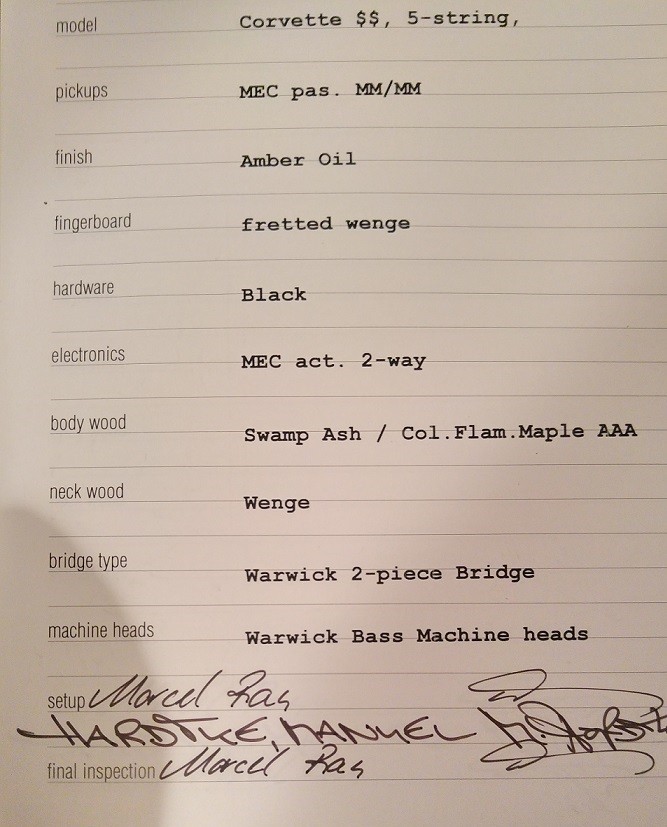 model Corvette $$, 5-string,
pickups MEC pas. MM/MM
finish Amber Oil
fingerboard fretted wenge
hardware Black
electronics MEC act. 2-way
body wood Swamp Ash / Col.Flam.Maple AAA
neck wood Wenge
bridge type Warwick 2-piece Bridge
machine heads Warwick Bass Machine heads
setup Marcel
final inspection Marcel